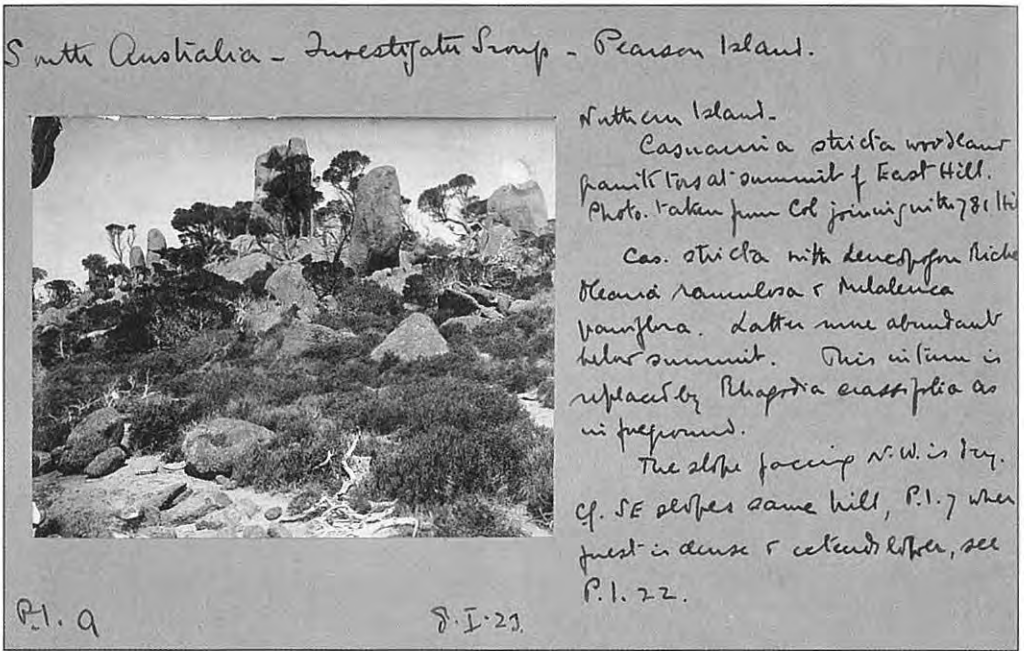 South Australia - Investigator Group - Pearson Island.
Northern Island.
Casuarina stricta woodland
granite tors at summit of East Hill.
Photo. taken from Col joining with 781 Hi
Cas. stricta with Leucopogon Riche
Olearia ramulosa & Melaleuca
parviflora. Latter more abundant
below summit. This in turn is
replaced by Rhagodia crassifolia as
in foreground.
The slope facing N.W. is dry.
Cf. SE slopes same hill, P.I.7 where
forest is dense & extends lower, see
P.I.22.
P.I. 9
8.I.23.